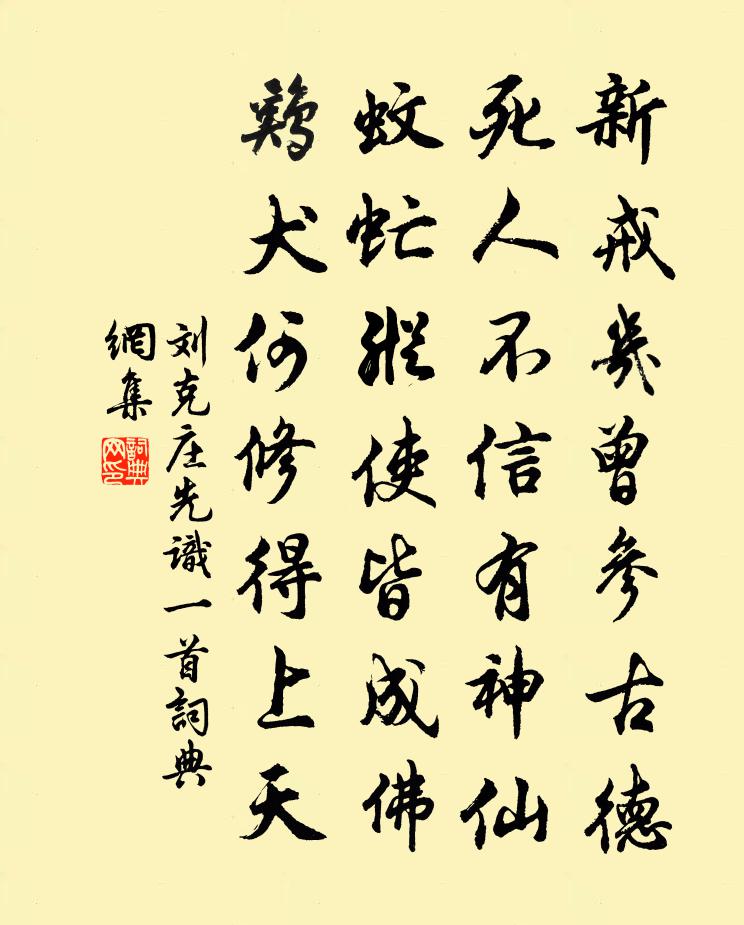 新戒幾曾參古德
死人不信有神仙
蚊虻縱使皆成佛
鷄犬何修得上天
刘克庄先識一首詞典
網集
詞典
网印